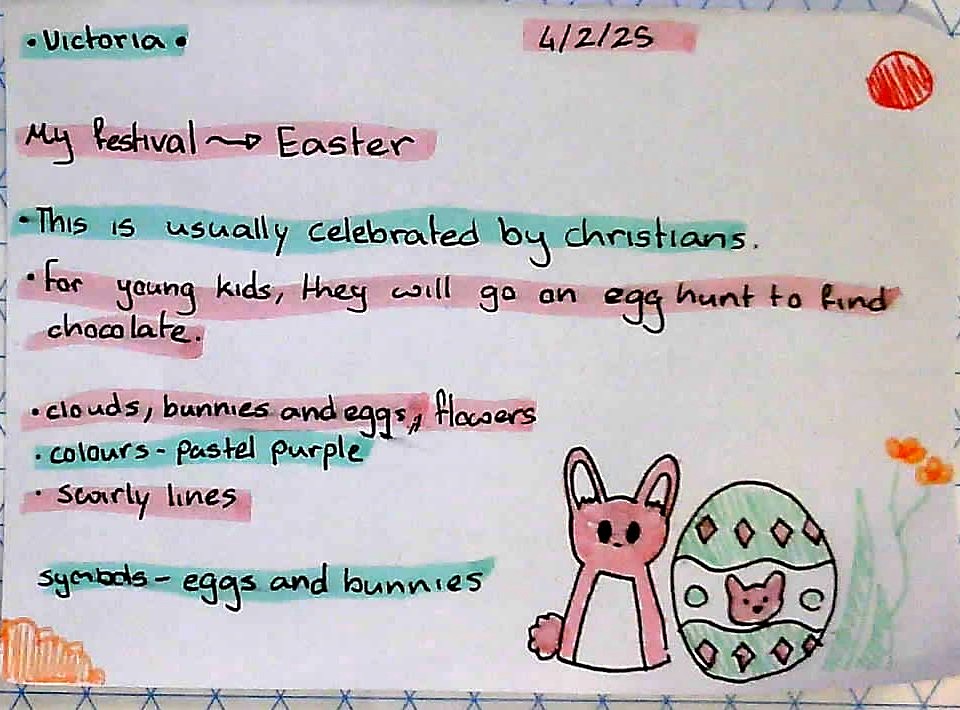 • Victoria •
4/2/25
My festival ~> Easter
• This is usually celebrated by christians.
• For young kids, they will go on egg hunt to find
chocolate.
• clouds, bunnies and eggs, flowers
• colours - pastel purple
• Swirly lines
symbols - eggs and bunnies